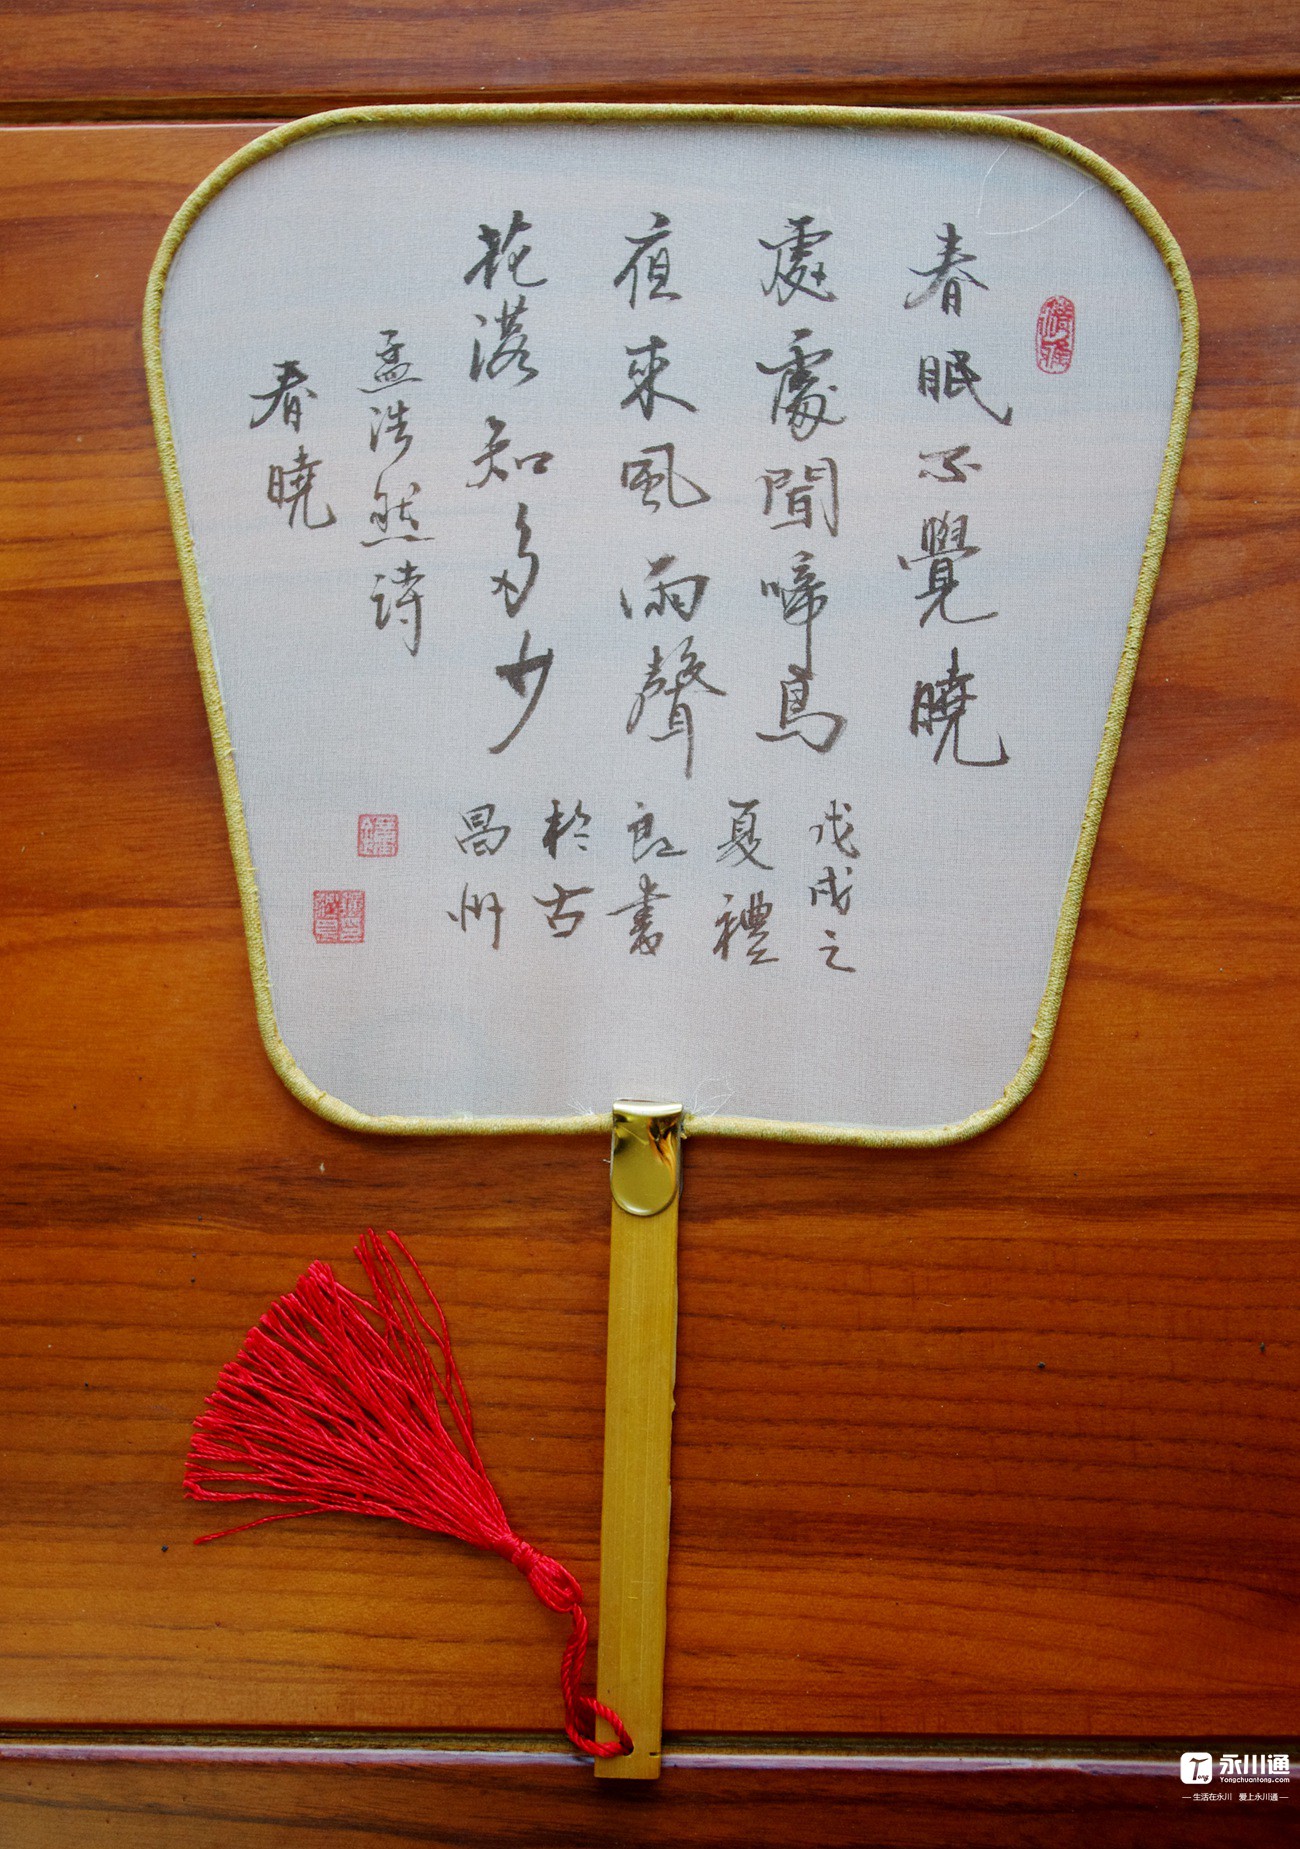 春眠不覺曉
處處聞啼鳥
夜來風雨聲
花落知多少
孟浩然詩
春曉
戊戌之
夏禮
良書
於古
昌州
永川通
Yongchuantong.com
生活在永川 爱上永川通